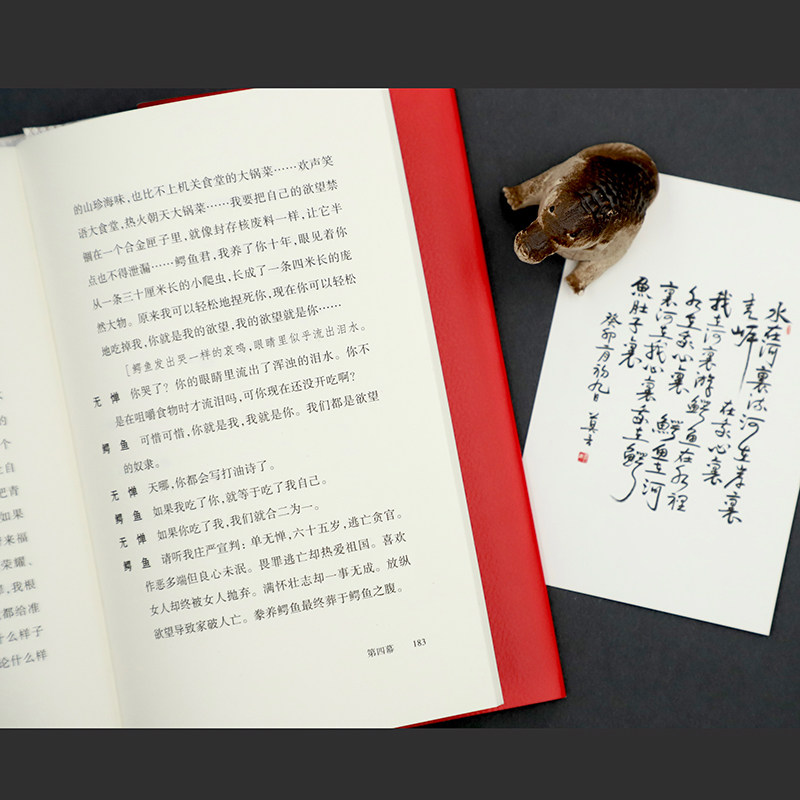 的山珍海味，也比不上机关食堂的大锅菜……欢声笑
语大食堂，热火朝天大锅菜……我要把自己的欲望禁
锢在一个合金匣子里，就像封存核废料一样，让它半
点也不得泄漏……鳄鱼君，我养了你十年，眼见着你
从一条三十厘米长的小爬虫，长成了一条四米长的庞
然大物。原来我可以轻松地捏死你，现在你可以轻松
地吃掉我，你就是我的欲望，我的欲望就是你……
［鳄鱼发出哭一样的哀鸣，眼睛里似乎流出泪水。
无惮 你哭了？你的眼睛里流出了浑浊的泪水。你不
是在咀嚼食物时才流泪吗，可你现在还没开吃啊？
鳄鱼 可惜可惜，你就是我，我就是你。我们都是欲望
的奴隶。
无惮 天哪，你都会写打油诗了。
鳄鱼 如果我吃了你，就等于吃了我自己。
无惮 如果你吃了我，我们就合二为一。
鳄鱼 请听我庄严宣判：单无惮，六十五岁，逃亡贪官。
作恶多端但良心未泯。畏罪逃亡却热爱祖国。喜欢
女人却终被女人抛弃。满怀壮志却一事无成。放纵
欲望导致家破人亡。豢养鳄鱼最终葬于鳄鱼之腹。
第四幕 183
的
个
把青
如果
来福
荣耀、
我根
都给准
什么样子
论什么样
水在河裏流河在岸裏
在我心裏
我在河裏游鳄鱼在水裡
水在我心裏 鳄鱼在河
裏河在我心裏我在鳄
魚肚子裏
癸卯二月初九日 莫言